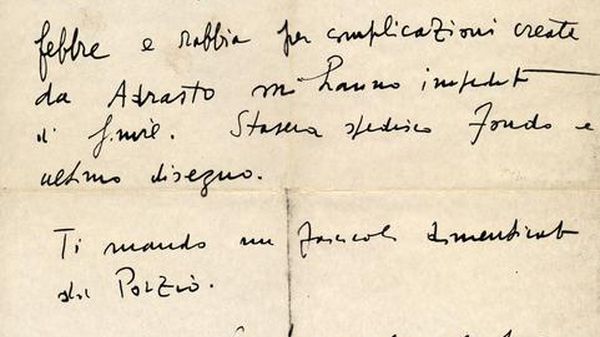 febbre e rabbia per complicazioni create
da Adrasto mi hanno impedito
di finire. Stasera spedisco fondo e
ultimo disegno.
Ti mando un fascicolo dimenticato
da Porzio.